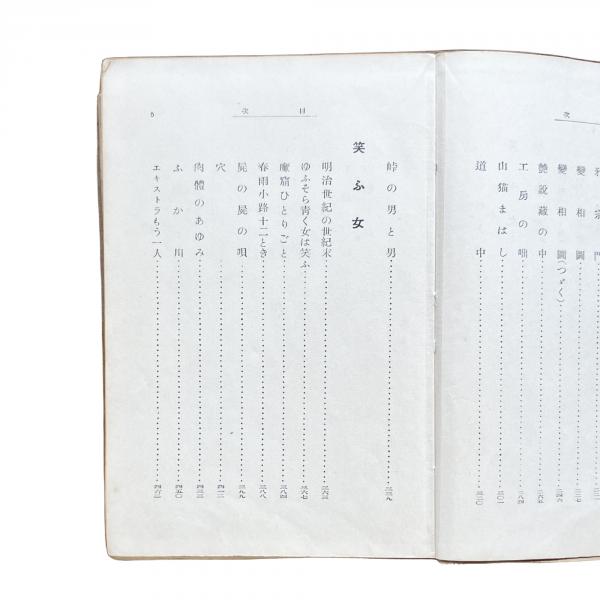 次
邪宗門
變相圖
變相圖(つゞく)……二四六
艶説藏の中……二六五
工房の咄……二八四
山猫まはし……三〇一
道中……三二〇
目次
5
峠の男と男……三三九
笑ふ女
明治世紀の世紀末……三六三
ゆふぞら靑く女は笑ふ……三六七
魔窟ひとりごと……三八四
春雨小路十二とき……三八八
屍の屍の唄……三九九
穴……四一二
肉體のあゆみ……四三三
ふか川……四五〇
エキストラもう一人